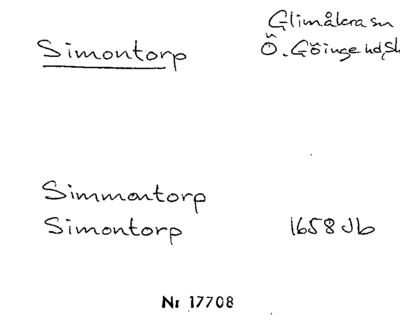 Glimåkra sn
Simontorp
Ö. Göinge hd, Sk
Simmontorp
Simontorp 1658 Jb
Nr 17708